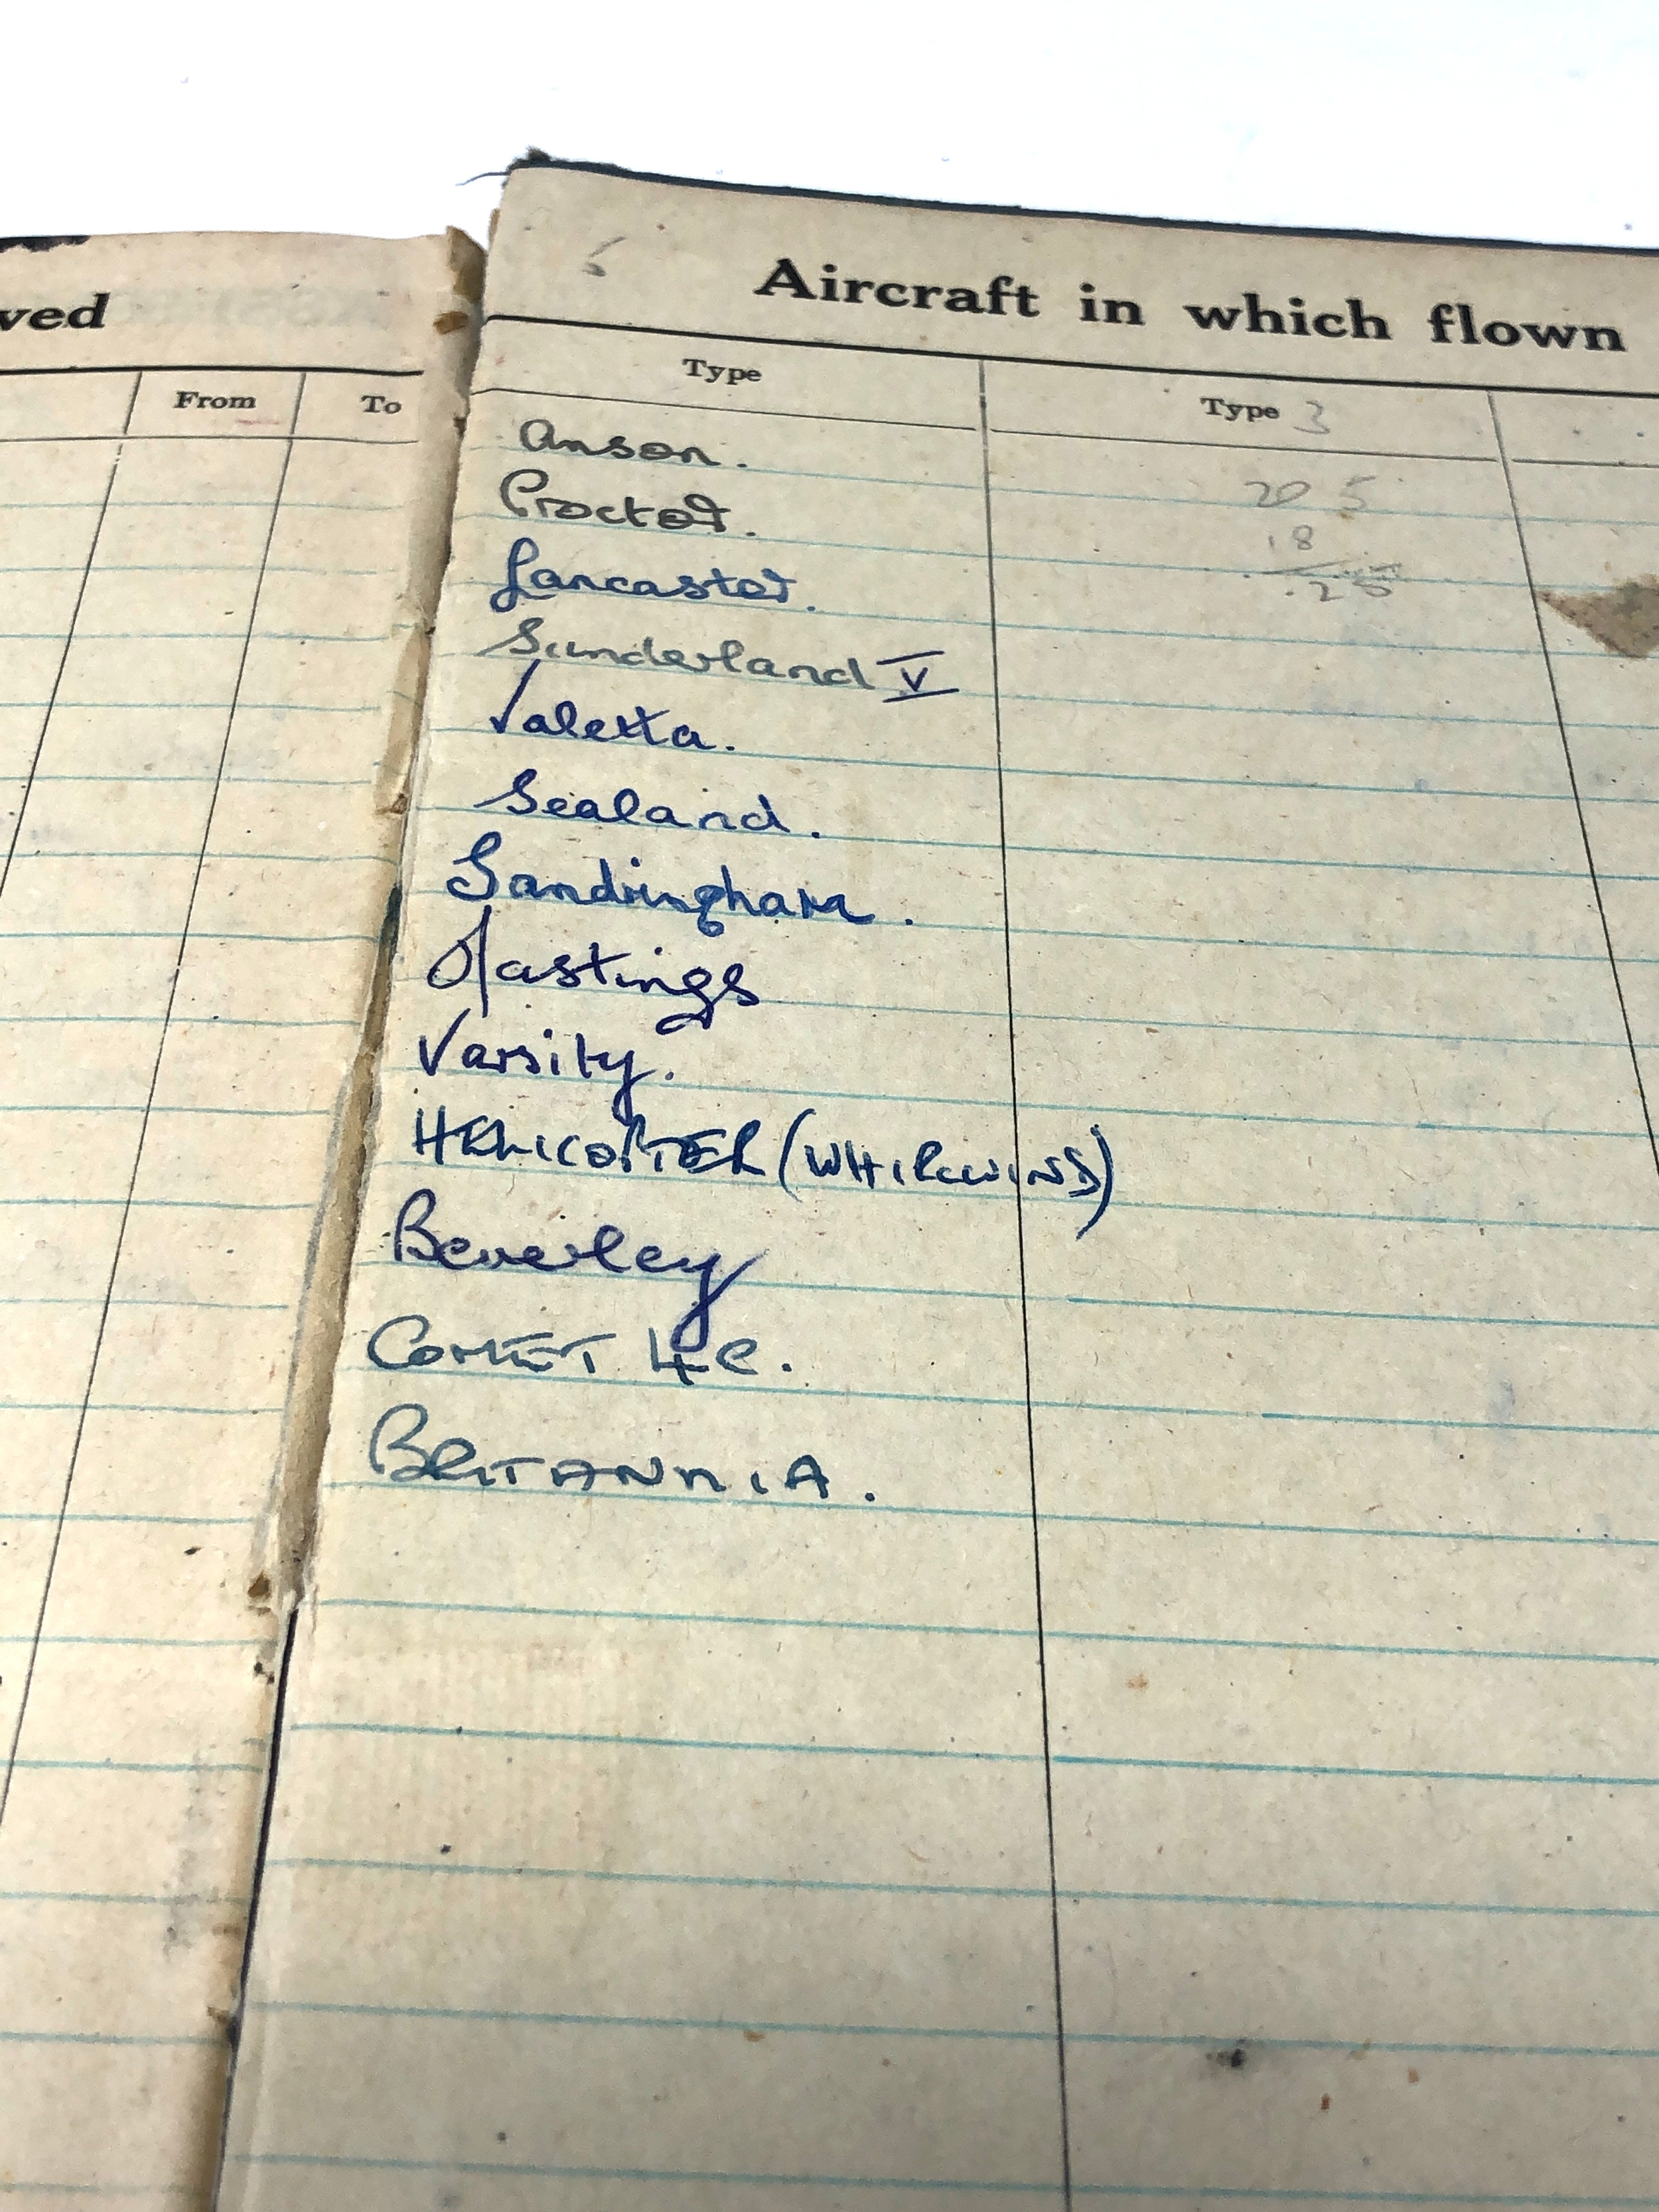 ved
From To
Aircraft in which flown
Type
Type 3
Anson.
Proctor.
Lancaster.
Sunderland V
Valetta.
Sealand.
Sandringham.
Hastings
Varsity.
HELICOPTER (WHIRLWIND)
Beverley
COMET 4C.
BRITANNIA.
20 5
18
.25